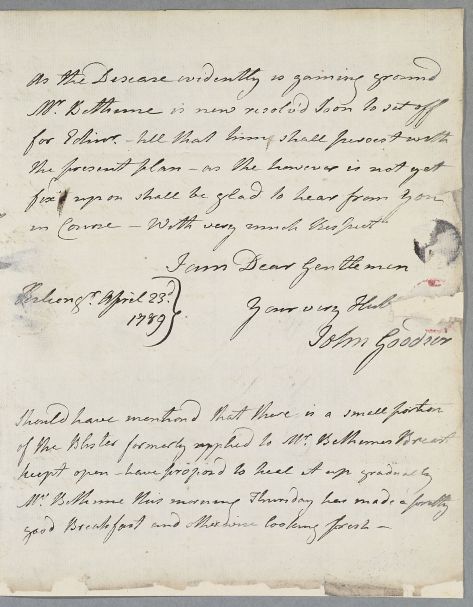 As the Disease evidently is gaining ground
Mr. Bethune is now resolv'd soon to set off
for Edinr. - till that time shall persist with
the present plan - as the however is not yet
fix'd upon shall be glad to hear from you
in Course - With very much Respect
I am Dear Gentlemen
April 23d.
1789
Your very Hub
John Goodsir
Should have mentiond that there is a small portion
of the Blister formerly applied to Mr. Bethunes Breast
keept open - have propos'd to heal it up gradually
Mr. Bethune this morning Thursday has made a pretty
good Breakfast and otherwise looking fresh -